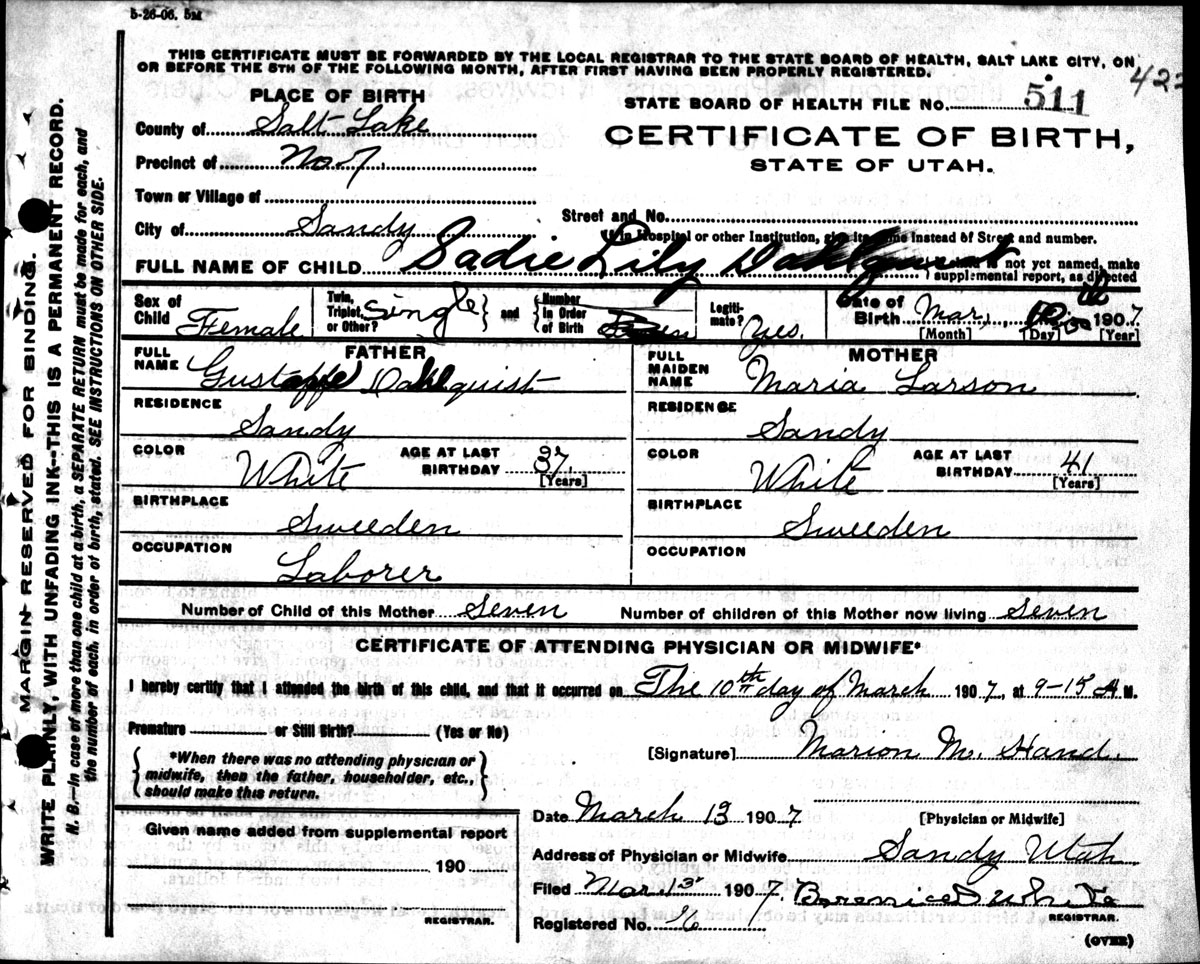 5-26-06. 5M
THIS CERTIFICATE MUST BE FORWARDED BY THE LOCAL REGISTRAR TO THE STATE BOARD OF HEALTH, SALT LAKE CITY, ON
OR BEFORE THE 5TH OF THE FOLLOWING MONTH, AFTER FIRST HAVING BEEN PROPERLY REGISTERED.
PLACE OF BIRTH
STATE BOARD OF HEALTH FILE No. 511
County of Salt Lake
CERTIFICATE OF BIRTH,
Precinct of No 7.
STATE OF UTAH.
Town or Village of
Street and No.
City of Sandy
(If in Hospital or other Institution, give its name instead of Street and number.
FULL NAME OF CHILD Sadie Lily Dahlquist
is not yet named, make
supplemental report, as directed
Sex of Child Female
Twin, Triplet, or Other? Single and
Number In Order of Birth
Legiti-mate? Yes.
Date of Birth Mar. 1907
[Month] [Day] [Year]
FATHER
FULL NAME Gustaffe Dahlquist
RESIDENCE Sandy
COLOR White
AGE AT LAST BIRTHDAY 37
[Years]
BIRTHPLACE Sweeden
OCCUPATION Laborer
MOTHER
FULL MAIDEN NAME Maria Larson
RESIDENCE Sandy
COLOR White
AGE AT LAST BIRTHDAY 41
[Years]
BIRTHPLACE Sweeden
OCCUPATION
Number of Child of this Mother Seven Number of children of this Mother now living Seven
CERTIFICATE OF ATTENDING PHYSICIAN OR MIDWIFE*
I hereby certify that I attended the birth of this child, and that it occurred on The 10th day of March 1907, at 9-15 A M.
Premature or Still Birth? (Yes or No)
*When there was no attending physician or
midwife, then the father, householder, etc.,
should make this return.
[Signature] Marion M. Hand.
Given name added from supplemental report
190
REGISTRAR.
Date March 13 1907
[Physician or Midwife]
Address of Physician or Midwife Sandy Utah
Filed Mar 13 1907. Berenice D White
REGISTRAR.
Registered No. 6
(OVER)
MARGIN RESERVED FOR BINDING.
WRITE PLAINLY, WITH UNFADING INK--THIS IS A PERMANENT RECORD.
N. B.—In case of more than one child at a birth, a SEPARATE RETURN must be made for each, and
the number of each, in order of birth, stated. SEE INSTRUCTIONS ON OTHER SIDE.